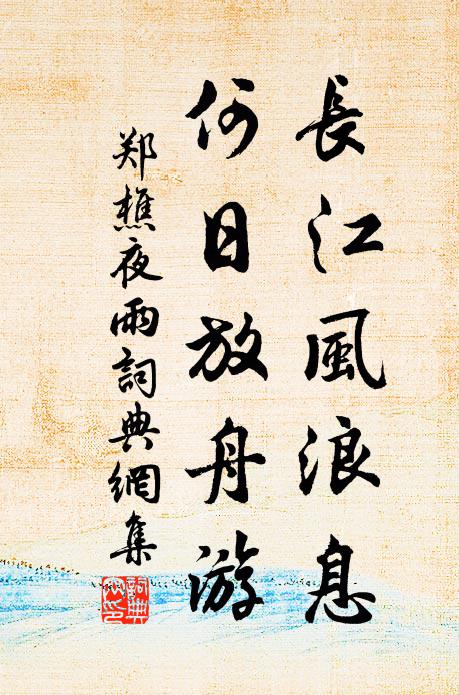 長江風浪息
何日放舟游
郑樵夜雨詞典網集